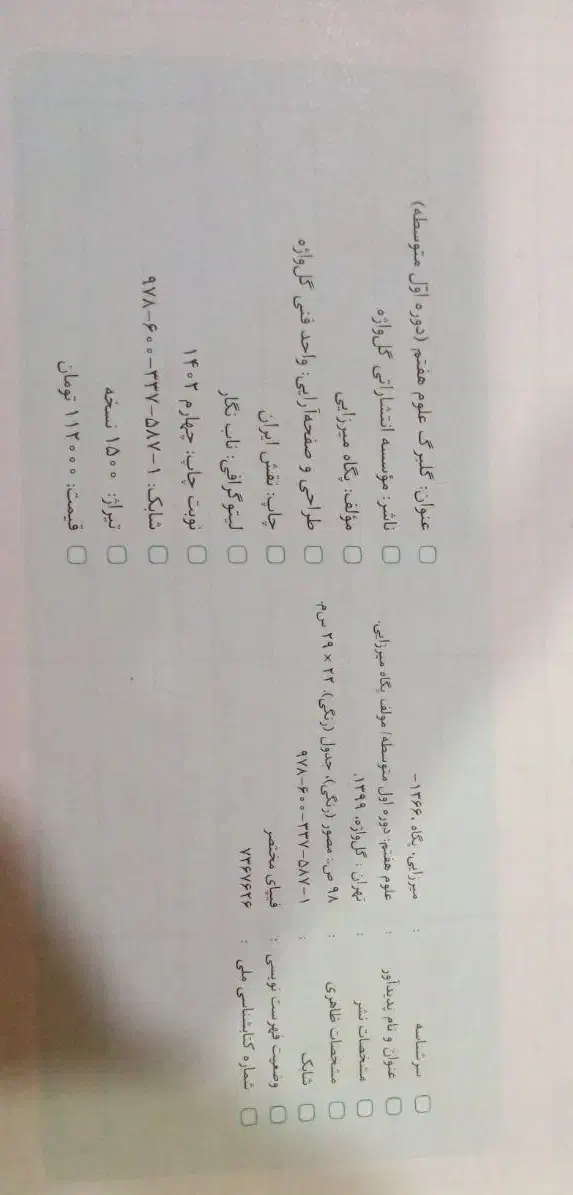 سرشناسه : میرزایی، پگاه ،۱۳۶۶-
عنوان و نام پدیدآور : علوم هفتم: دوره اول متوسطه/ مولف پگاه میرزایی.
مشخصات نشر : تهران : گل‌واژه، ۱۳۹۹.
مشخصات ظاهری : ۹۸ ص.: مصور (رنگی)، جدول (رنگی)، ۲۳ × ۲۹ س‌م.
شابک : ۹۷۸-۶۰۰-۳۳۷-۵۸۷-۱
وضعیت فهرست نویسی : فیپای مختصر
شماره کتابشناسی ملی : ۷۳۶۷۶۲۶
عنوان: گلبرگ علوم هفتم (دوره اوّل متوسطه)
ناشر: مؤسسه انتشاراتی گل‌واژه
مؤلف: پگاه میرزایی
طراحی و صفحه‌آرایی: واحد فنی گل‌واژه
چاپ: نقش ایران
لیتوگرافی: ناب نگار
نوبت چاپ: چهارم ۱۴۰۲
شابک: ۹۷۸-۶۰۰-۳۳۷-۵۸۷-۱
تیراژ: ۱۵۰۰ نسخه
قیمت: ۱۱۲۰۰۰ تومان